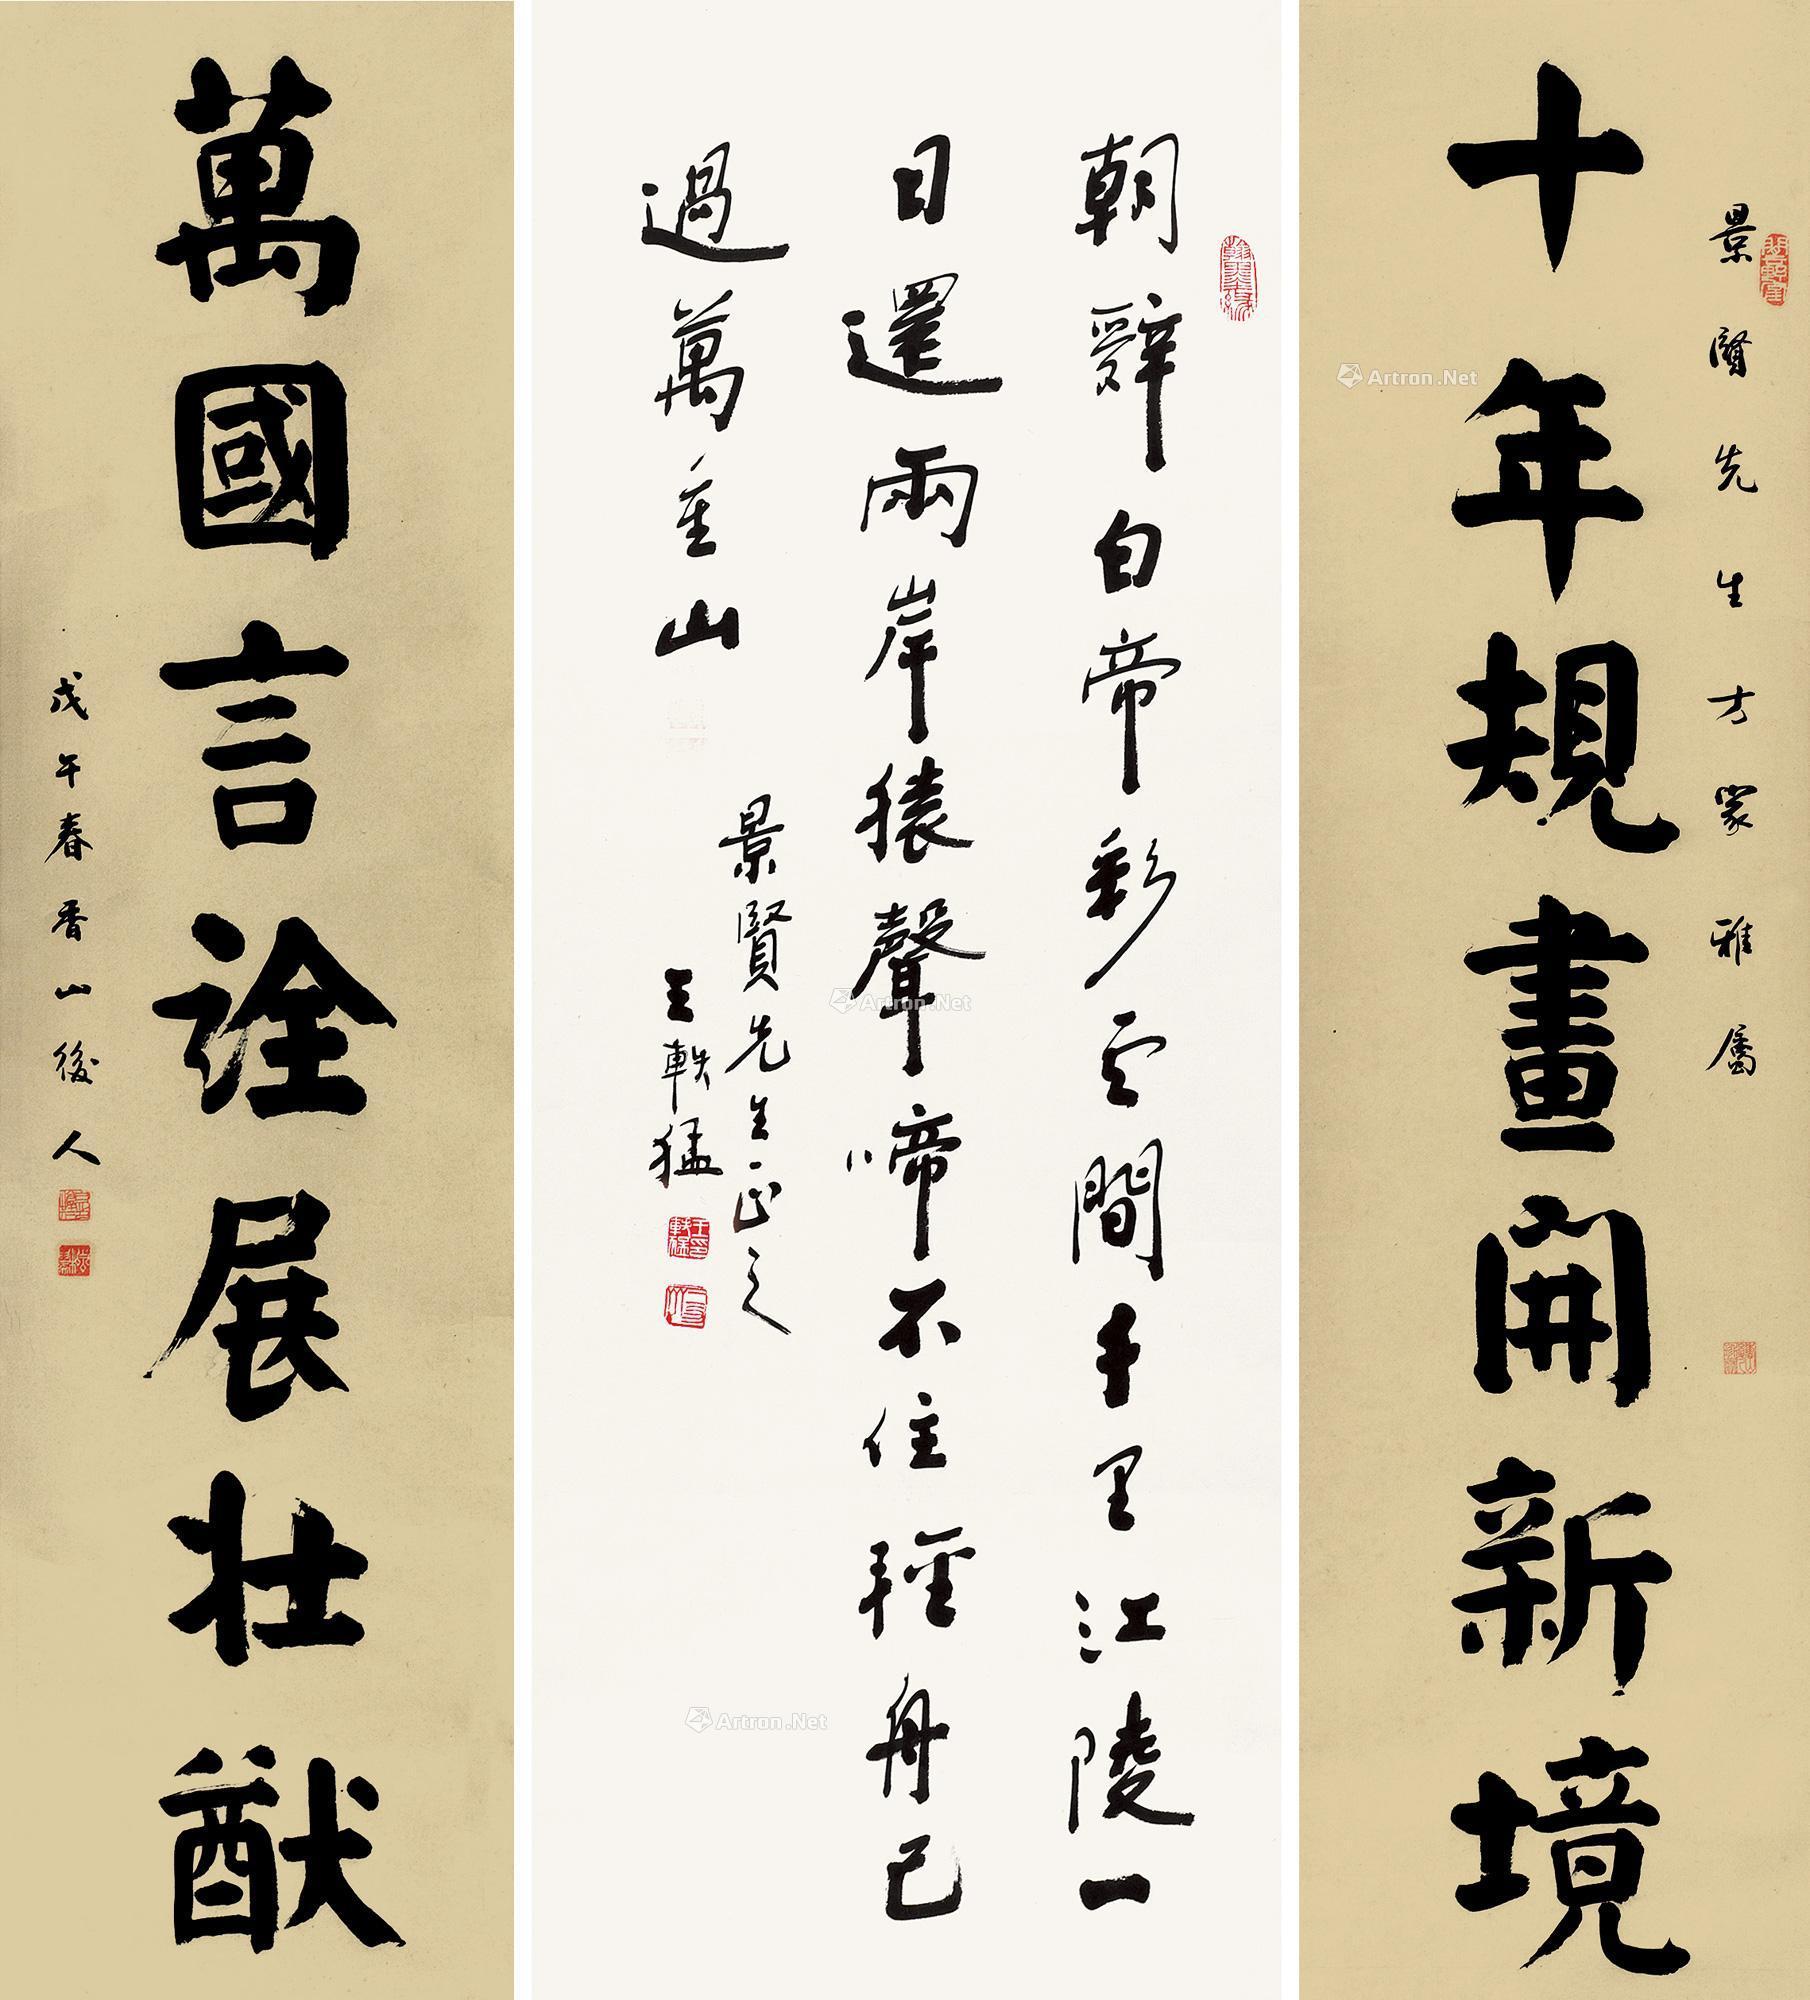 景賢先生方家雅屬
十年規畫開新境
朝辭白帝彩雲間千里江陵一
日還兩岸猿聲啼不住輕舟已
過萬重山
景賢先生正之
王軼猛
萬國言詮展壯猷
戊午春香山後人
Artron.Net
Artron.Net
Artron.Net